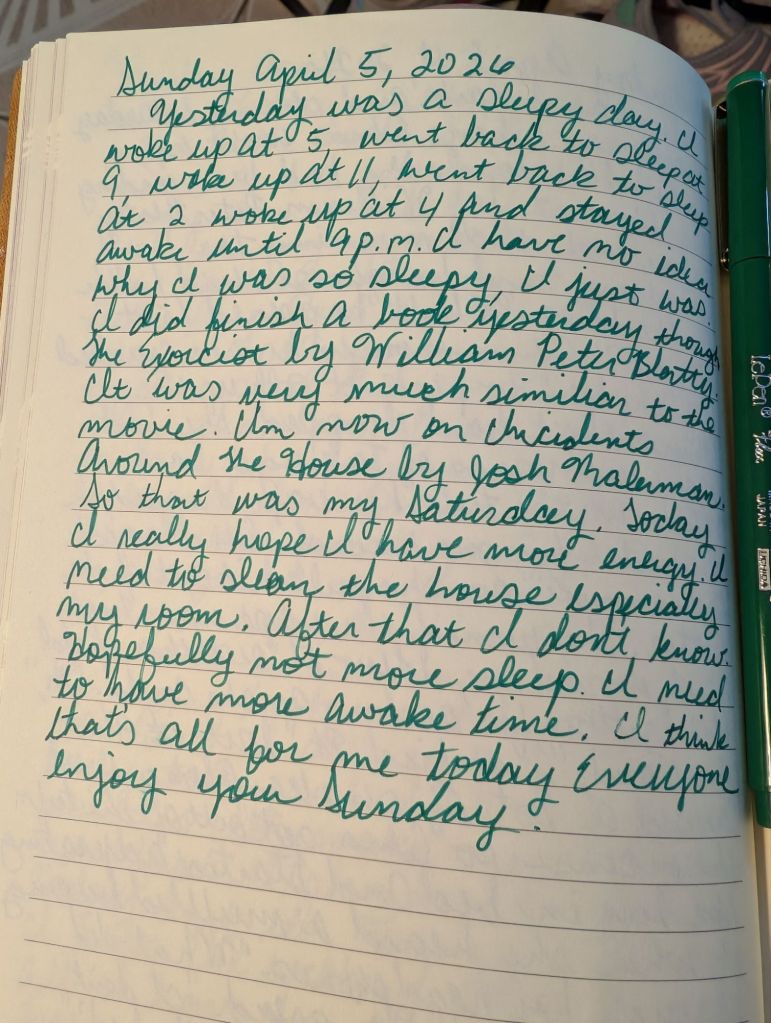 Sunday April 5, 2026
Yesterday was a sleepy day. I
woke up at 5, went back to sleep at
9, woke up at 11, went back to sleep
at 2 woke up at 4 and stayed
awake until 9 p.m. I have no idea
why I was so sleepy, I just was.
I did finish a book yesterday though
The Exorcist by William Peter Blatty.
It was very much similiar to the
movie. I'm now on Incidents
Around the House by Josh Malerman.
So that was my Saturday. Today
I really hope I have more energy. I
need to clean the house especially
my room. After that I don't know.
Hopefully not more sleep. I need
to have more awake time. I think
that's all for me today Everyone
enjoy your Sunday.
LePen
JAPAN